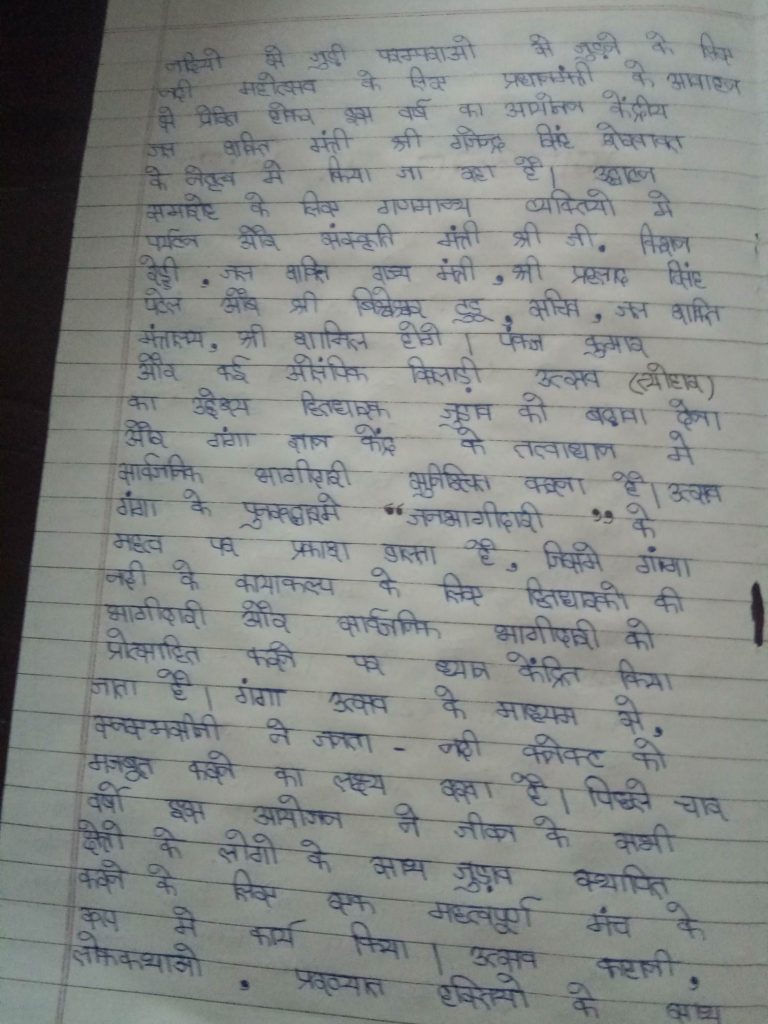 नदियो से जुडी परम्पराओ से जुड़ने के लिए
नदी महोत्सव के लिए प्रधानमंत्री के आवाहन
से प्रेरित होकर इस वर्ष का आयोजन केंद्रीय
जल शक्ति मंत्री श्री गजेन्द्र सिंह शेखावत
के नेतृत्व मे किया जा रहा है। उद्घाटन
समारोह के लिए गणमान्य व्यक्तियो मे
पर्यटन और संस्कृति मंत्री श्री जी. किशन
रेड्डी , जल शक्ति राज्य मंत्री , श्री प्रहलाद सिंह
पटेल और श्री बिश्वेश्वर टुडू , सचिव , जल शक्ति
मंत्रालय, श्री शामिल होगे । पंकज कुमार
और कई ओलंपिक खिलाड़ी उत्सव (त्योहार)
का उद्देश्य हितधारक जुड़ाव को बढावा देना
और गंगा ज्ञान केंद्र के तत्वाधान मे
सार्वजनिक भागीदारी सुनिश्चित करना है। उत्सव
गंगा के पुनरुद्धारमे “जनभागीदारी ” के
महत्व पर प्रकाश डालता है , जिसमे गंगा
नदी के कायाकल्प के लिए हितधारको की
भागीदारी और सार्वजनिक भागीदारी को
प्रोत्साहित करने पर ध्यान केंद्रित किया
जाता है। गंगा उत्सव के माध्यम से,
एनएमसीजी ने जनता - नदी कनेक्ट को
मजबूत करने का लक्ष्य रखा है। पिछले चार
वर्षो इस आयोजन ने जीवन के सभी
क्षेत्रो के लोगो के साथ जुड़ाव स्थापित
करने के लिए एक महत्वपूर्ण मंच के
रूप मे कार्य किया । उत्सव कहानी,
लोककथाओ , प्रख्यात हस्तियो के साथ